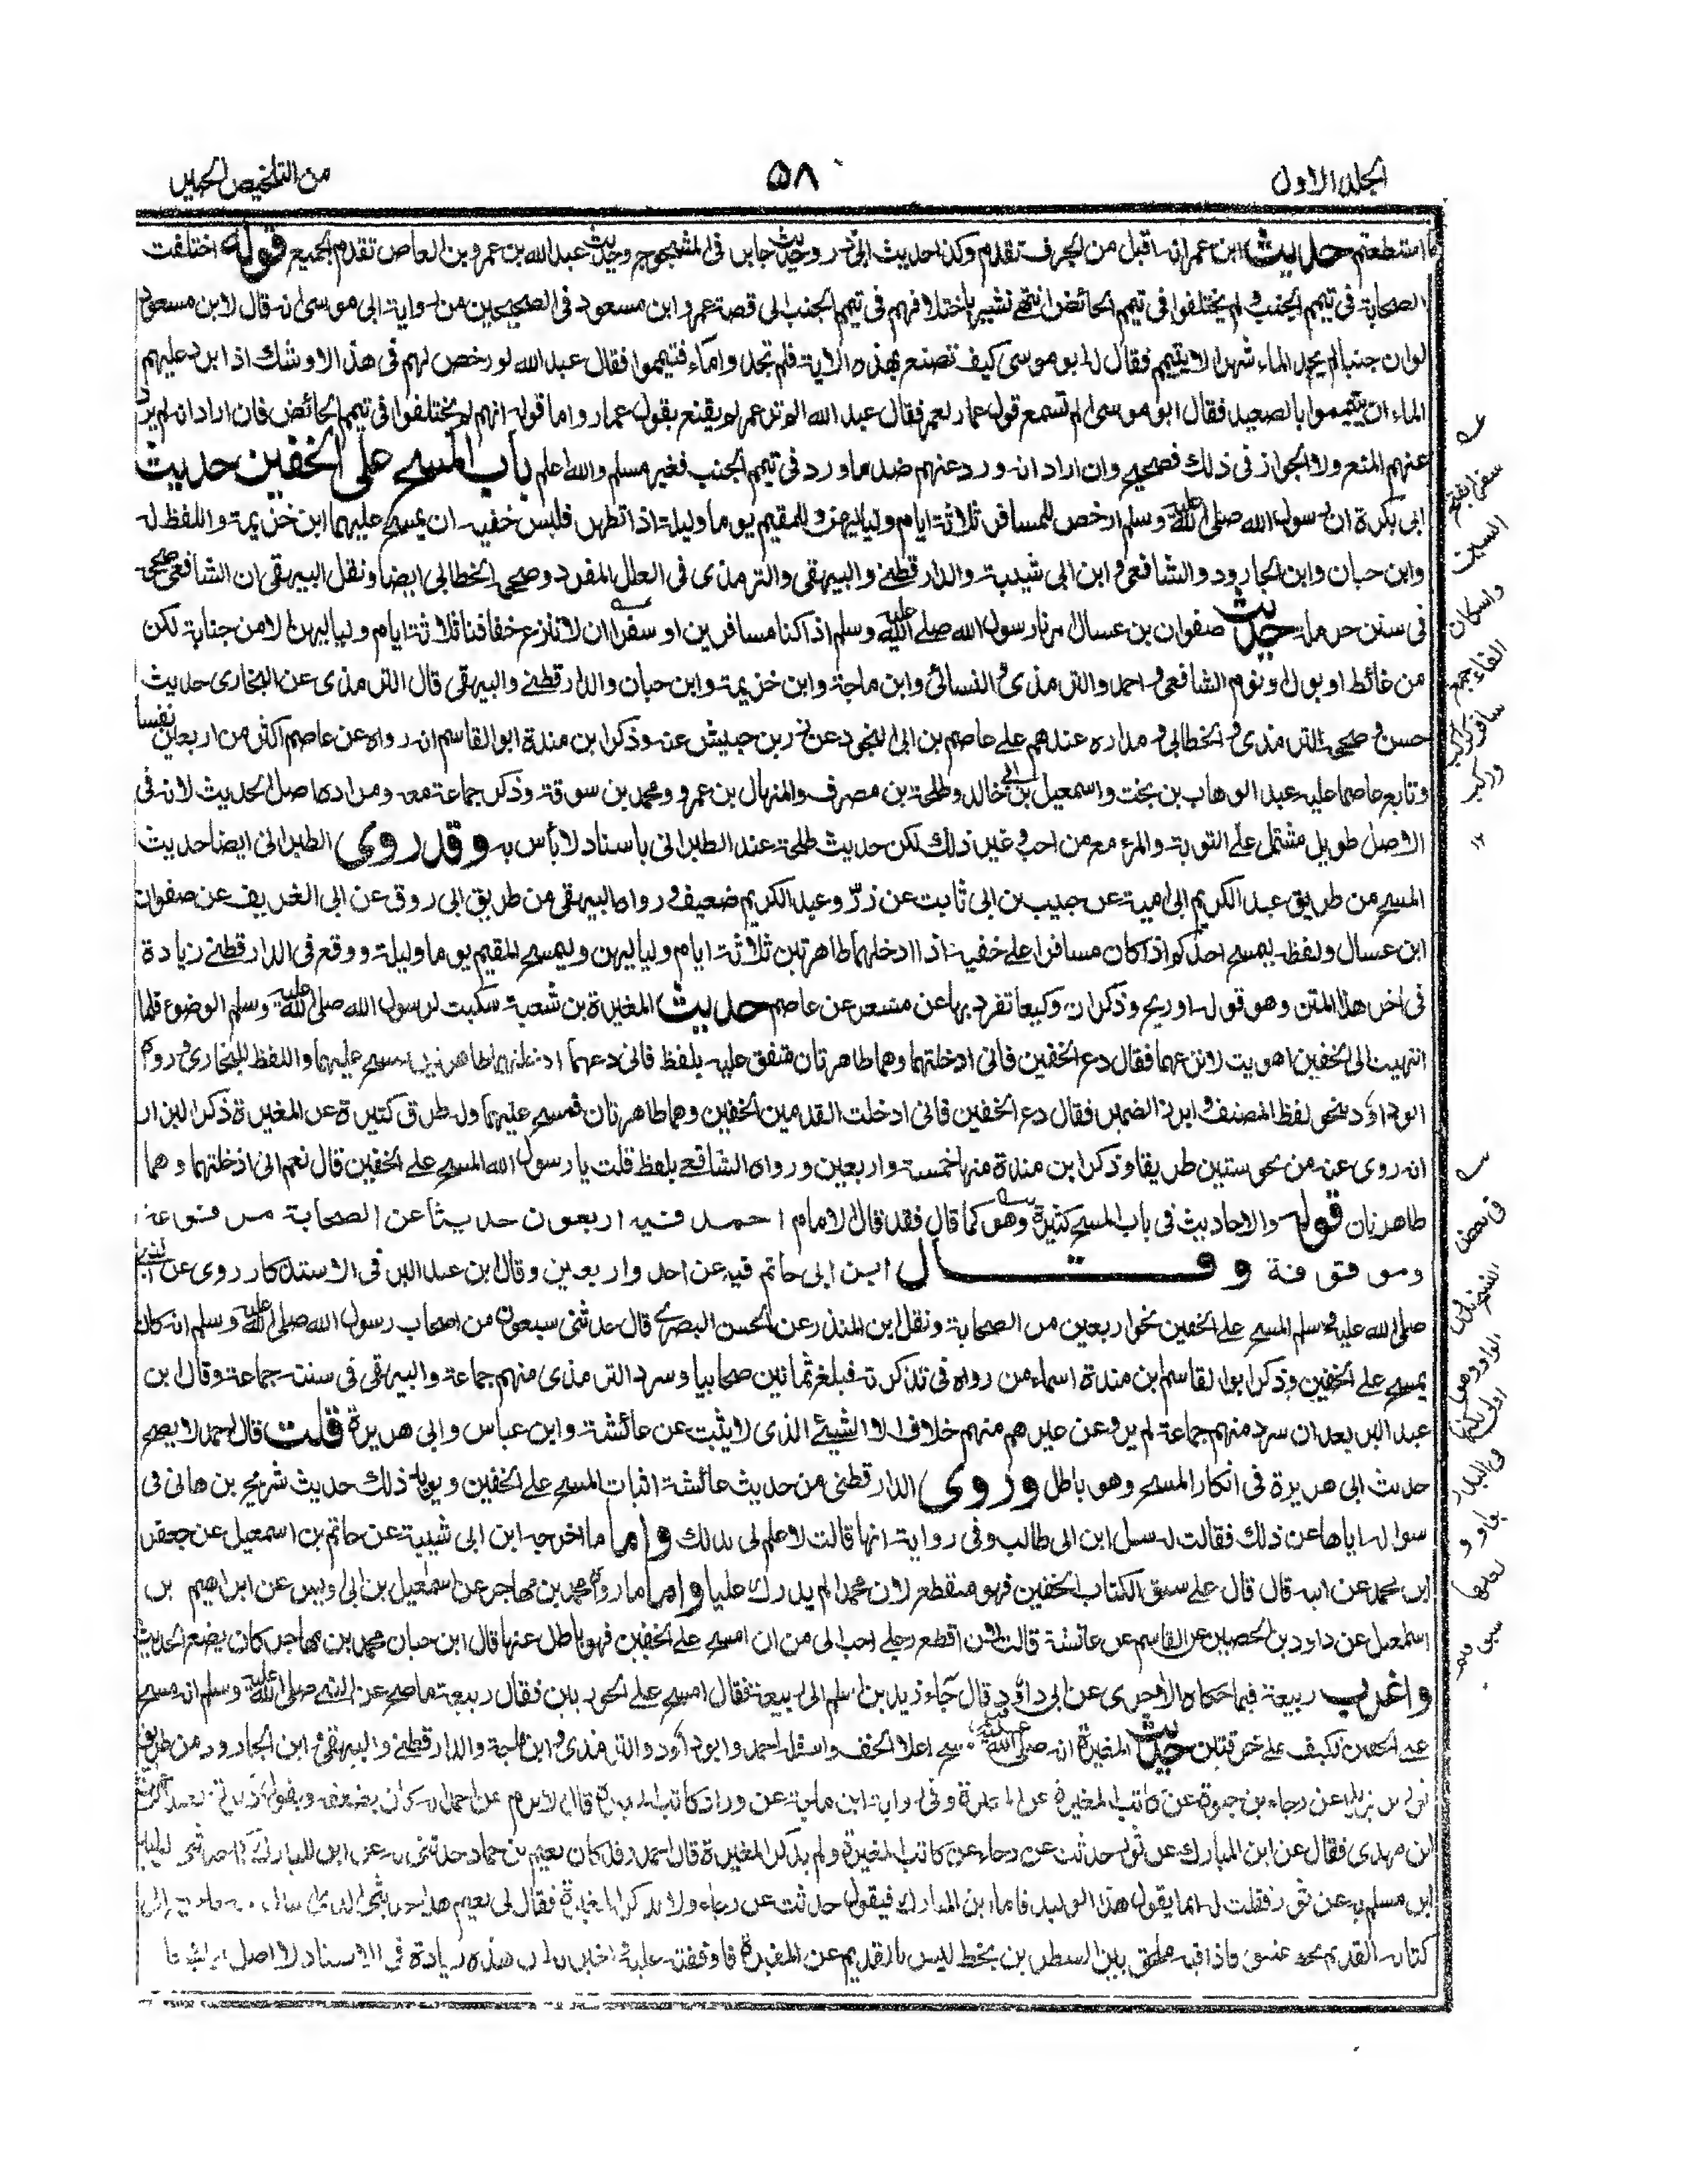 الجلد الاول
۵۸
من التلخيص الحبير
ما استطعتم حديث ابن عمر انه اقبل من الجرف تقدم وكذا حديث ابى ذر وحديث جابر فى المشجوج وحديث عبد الله بن عمرو بن العاص تقدم الجميع قوله اختلفت
الصحابة فى تيمم الجنب ولم يختلفوا فى تيمم الحائض انتهى نشير باختلافهم فى تيمم الجنب الى قصة عمر وابن مسعود فى الصحيحين من رواية ابى موسى انه قال لابن مسعود
لو ان جنبا لم يجد الماء شهرا لا يتيمم فقال له ابو موسى كيف تصنع بهذه الاية فلم تجدوا ماء فتيمموا فقال عبد الله لو رخص لهم فى هذا لاوشك اذا برد عليهم
الماء ان يتيمموا بالصعيد فقال ابو موسى الم تسمع قول عمار لعمر فقال عبد الله الم تر عمر لم يقنع بقول عمار واما قوله انهم لم يختلفوا فى تيمم الحائض فان اراد انه لم يرد
عنهم المنع ولا الجواز فى ذلك فصحيح وان اراد انه ورد عنهم ضد ما ورد فى تيمم الجنب فغير مسلم والله اعلم باب المسح على الخفين حديث
ابى بكرة ان رسول الله صلى الله عليه وسلم ارخص للمسافر ثلاثة ايام ولياليهن وللمقيم يوما وليلة اذا تطهر فلبس خفيه ان يمسح عليهما ابن خزيمة واللفظ له
وابن حبان وابن الجارود والشافعى وابن ابى شيبة والدارقطنى والبيهقى والترمذى فى العلل المفرد وصححه الخطابى ايضا ونقل البيهقى ان الشافعى صححه
فى سنن حرملة حديث صفوان بن عسال امرنا رسول الله صلى الله عليه وسلم اذا كنا مسافرين او سفرا ان لا ننزع خفافنا ثلاثة ايام ولياليهن الا من جنابة لكن
من غائط او بول او نوم الشافعى واحمد والترمذى والنسائى وابن ماجة وابن خزيمة وابن حبان والدارقطنى والبيهقى قال الترمذى عن البخارى حديث
حسن وصححه الترمذى والخطابى ومداره عندهم على عاصم بن ابى النجود عن زر بن حبيش عنه وذكر ابن مندة ابو القاسم انه رواه عن عاصم اكثر من اربعين نفسا
وتابع عاصما عليه عبد الوهاب بن بخت واسمعيل بن ابى خالد وطلحة بن مصرف والمنهال بن عمرو ومحمد بن سوقة وذكر جماعة معه ومراده اصل الحديث لانه فى
الاصل طويل مشتمل على التوبة والمرء مع من احب وغير ذلك لكن حديث طلحة عند الطبرانى باسناد لا بأس به وقد روى الطبرانى ايضا حديث
المسح من طريق عبد الكريم ابى امية عن حبيب بن ابى ثابت عن زر وعبد الكريم ضعيف ورواه البيهقى من طريق ابى روق عن ابى الغريف عن صفوان
ابن عسال ولفظه ليمسح احدكم اذا كان مسافرا على خفيه اذا ادخلهما طاهرتين ثلاثة ايام ولياليهن وليمسح المقيم يوما وليلة ووقع فى الدارقطنى زيادة
فى اخر هذا المتن وهو قوله او ريح وذكر ان وكيعا تفرد بها عن مسعر عن عاصم حديث المغيرة بن شعبة سكبت لرسول الله صلى الله عليه وسلم الوضوء فلما
انتهيت الى الخفين اهويت لانزعهما فقال دع الخفين فانى ادخلتهما وهما طاهرتان متفق عليه بلفظ فانى دعهما ادخلتهما طاهرتين فمسح عليهما واللفظ للبخارى ورواه
ابو داود نحو لفظ المصنف وابرز الضمير فقال دع الخفين فانى ادخلت القدمين الخفين وهما طاهرتان فمسح عليهما وله طرق كثيرة عن المغيرة ذكر البزار
انه روى عنه من نحو ستين طريقا وذكر ابن مندة منها خمسة واربعين ورواه الشافعى بلفظ قلت يا رسول الله المسح على الخفين قال نعم انى ادخلتهما وهما
طاهرتان قوله والاحاديث فى باب المسح كثيرة وهو كما قال فقد قال الامام احمد فيه اربعون حديثا عن الصحابة مرفوعة
وموقوفة وقال ابن ابى حاتم فيه عن احد واربعين وقال ابن عبد البر فى الاستذكار روى عن النبى
صلى الله عليه وسلم المسح على الخفين نحو اربعين من الصحابة ونقل ابن المنذر عن الحسن البصرى قال حدثنى سبعون من اصحاب رسول الله صلى الله عليه وسلم انه كان
يمسح على الخفين وذكر ابو القاسم بن مندة اسماء من رواه فى تذكرته فبلغ ثمانين صحابيا وسرد الترمذى منهم جماعة والبيهقى فى سننه جماعة وقال ابن
عبد البر بعد ان سرد منهم جماعة لم يرو عن غيرهم منهم خلاف الا الشيئ الذى لا يثبت عن عائشة وابن عباس وابى هريرة قلت قال احمد لا يصح
حديث ابى هريرة فى انكار المسح وهو باطل وروى الدارقطنى من حديث عائشة اثبات المسح على الخفين ويؤيد ذلك حديث شريح بن هانى فى
سواله اياها عن ذلك فقالت له سل ابن ابى طالب وفى رواية انها قالت لا علم لى بذلك واما ما اخرجه ابن ابى شيبة عن حاتم بن اسمعيل عن جعفر
ابن محمد عن ابيه قال قال على سبق الكتاب الخفين فهو منقطع لان محمدا لم يدرك عليا واما ما رواه محمد بن مهاجر عن اسمعيل بن ابى اويس عن ابراهيم بن
اسمعيل عن داود بن الحصين عن القاسم عن عائشة قالت لان اقطع رجلى احب الى من ان امسح على الخفين فهو باطل عنها قال ابن حبان محمد بن مهاجر كان يضع الحديث
واغرب ربيعة فيما حكاه الآجرى عن ابى داود قال جاء زيد بن اسلم الى ربيعة فقال امسح على الجوربين فقال ربيعة ما صح عن النبى صلى الله عليه وسلم انه مسح
على الخفين فكيف على خرقتين حديث المغيرة انه صلى الله عليه وسلم مسح اعلا الخف واسفله احمد وابو داود والترمذى وابن ماجة والدارقطنى والبيهقى وابن الجارود من طريق
ثور بن يزيد عن رجاء بن حيوة عن كاتب المغيرة عن المغيرة وفى رواية ابن ماجة عن وراد كاتب المغيرة قال الاثرم عن احمد انه كان يضعفه ويقول
ابن مهدى فقال عن ابن المبارك عن ثور حدثت عن رجاء عن كاتب المغيرة ولم يذكر المغيرة قال احمد وقد كان نعيم بن حماد حدثنى به عن ابن المبارك كما حدثنى الوليد
ابن مسلم به عن ثور فقلت له انما يقول هذا الوليد فاما ابن المبارك فيقول حدثت عن رجاء ولا يذكر المغيرة فقال لى نعيم هذا
كتابه القديم بخط عتيق فاذا فيه ملحق بين السطرين بخط ليس بالقديم عن المغيرة فاوقفته عليه واخبرته ان هذه زيادة فى الاسناد لا اصل لها
سفرا بفتح
السين
واسكان
الفاء جمع
سافر كراكب
وركب
۱۲
فى بعض